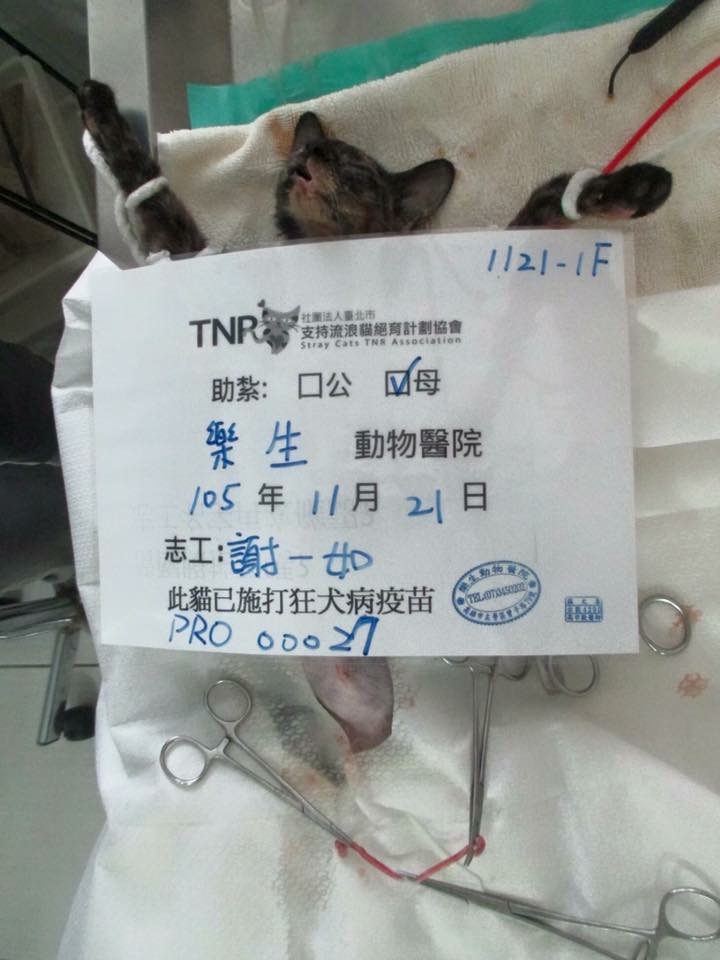 1121-1F
TNR 社團法人臺北市
支持流浪貓絕育計劃協會
Stray Cats TNR Association
助紮: 口公 口母
樂生 動物醫院
105 年 11 月 21 日
志工: 謝一如
此貓已施打狂犬病疫苗
PRO 00027
樂生動物醫院